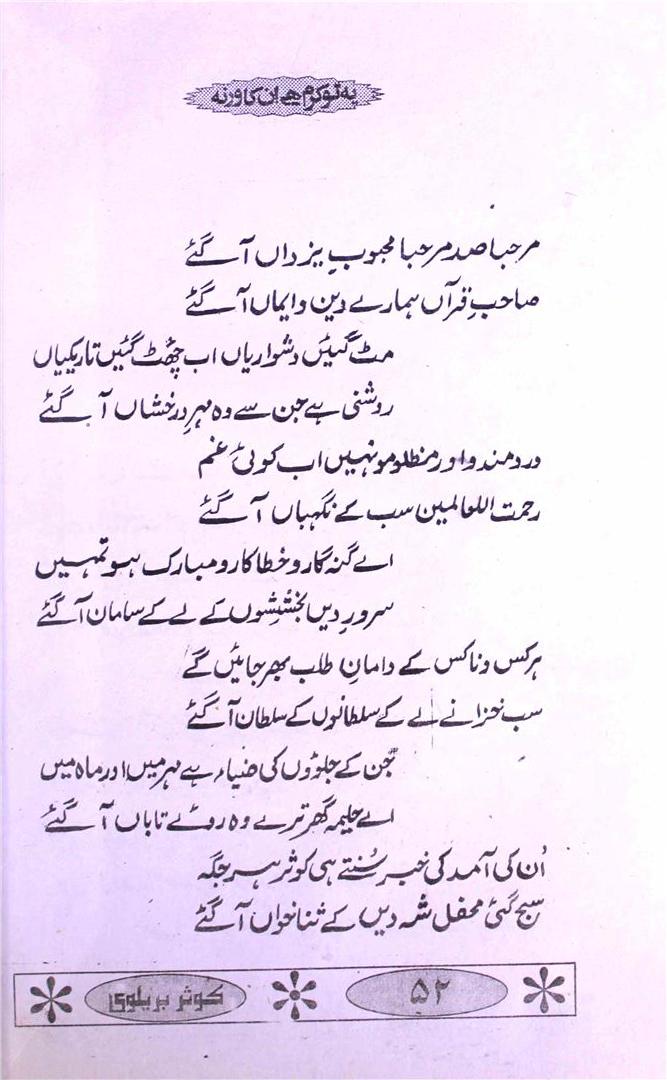 یہ تو کرم ہے ان کا ورنہ
مرحبا صد مرحبا محبوبِ یزداں آ گئے
صاحبِ قرآں ہمارے دین و ایماں آ گئے
مٹ گئیں دشواریاں اب چھُٹ گئیں تاریکیاں
روشنی ہے جن سے وہ مہرِ درخشاں آ گئے
درد مندو اور مظلومو نہیں اب کوئی غم
رحمت اللعالمین سب کے نگہباں آ گئے
اے گنہ گارو خطا کارو مبارک ہو تمہیں
سرورِ دیں بخششوں کے لے کے سامان آ گئے
ہر کس و ناکس کے دامانِ طلب بھر جائیں گے
سب خزانے لے کے سلطانوں کے سلطان آ گئے
جن کے جلوؤں کی ضیاء ہے مہر میں اور ماہ میں
اے حلیمہ گھر ترے وہ روئے تاباں آ گئے
اُن کی آمد کی خبر سُنتے ہی کوثر ہر جگہ
سج گئی محفل شہ دیں کے ثنا خواں آ گئے
۵۲
کوثر بریلوی